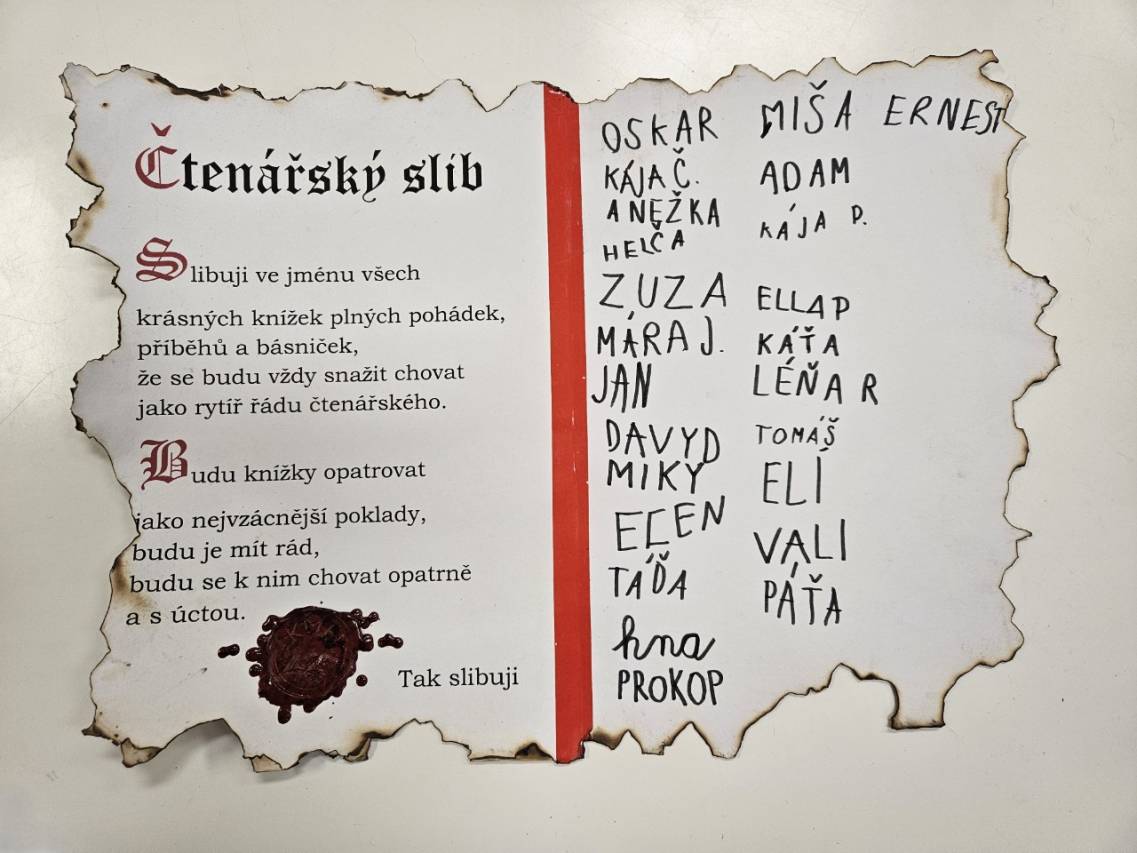 Čtenářský slib
Slibuji ve jménu všech
krásných knížek plných pohádek,
příběhů a básniček,
že se budu vždy snažit chovat
jako rytíř řádu čtenářského.
Budu knížky opatrovat
jako nejvzácnější poklady,
budu je mít rád,
budu se k nim chovat opatrně
a s úctou.
Tak slibuji
OSKAR
KÁJA Č.
ANEŽKA
HELČA
ZUZA
MÁRA J.
JAN
DAVYD
MIKY
ELEN
TÁĎA
hna
PROKOP
MIŠA
ADAM
KÁJA P.
ELLA P
KÁŤA
LÉŇA R
TOMÁŠ
ELÍ
VALI
PÁŤA
ERNEST